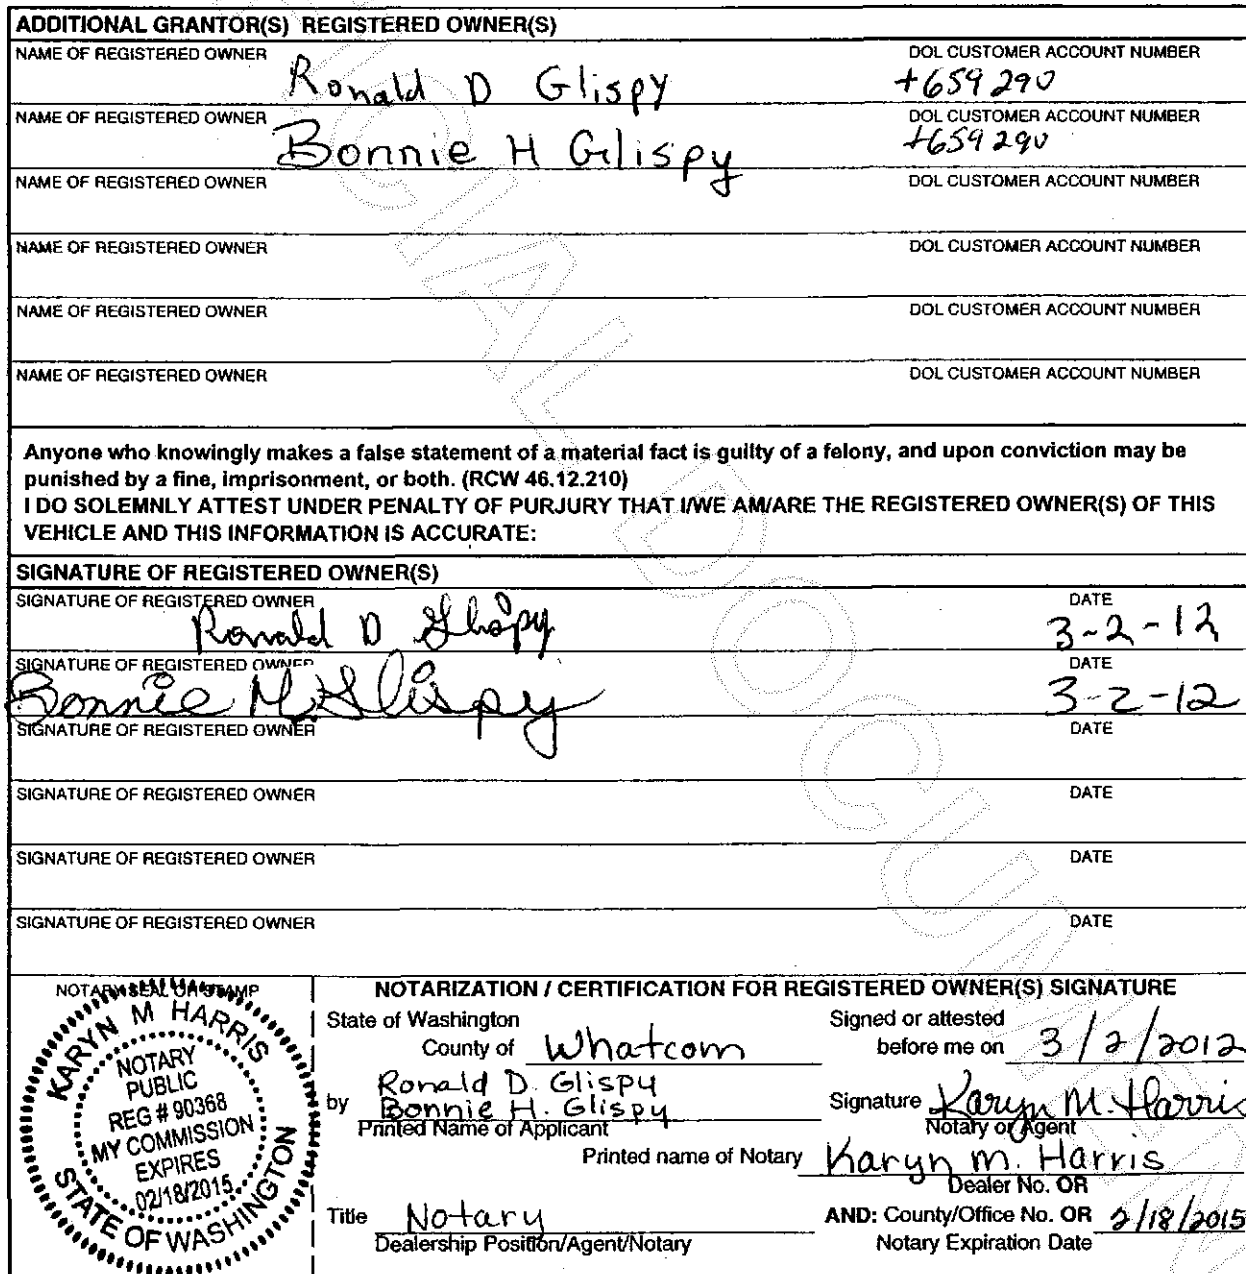 ADDITIONAL GRANTOR(S) REGISTERED OWNER(S)
NAME OF REGISTERED OWNER Ronald D Glispy DOL CUSTOMER ACCOUNT NUMBER +659290
NAME OF REGISTERED OWNER Bonnie H Glispy DOL CUSTOMER ACCOUNT NUMBER +659290
NAME OF REGISTERED OWNER DOL CUSTOMER ACCOUNT NUMBER
NAME OF REGISTERED OWNER DOL CUSTOMER ACCOUNT NUMBER
NAME OF REGISTERED OWNER DOL CUSTOMER ACCOUNT NUMBER
NAME OF REGISTERED OWNER DOL CUSTOMER ACCOUNT NUMBER
Anyone who knowingly makes a false statement of a material fact is guilty of a felony, and upon conviction may be
punished by a fine, imprisonment, or both. (RCW 46.12.210)
I DO SOLEMNLY ATTEST UNDER PENALTY OF PURJURY THAT I/WE AM/ARE THE REGISTERED OWNER(S) OF THIS
VEHICLE AND THIS INFORMATION IS ACCURATE:
SIGNATURE OF REGISTERED OWNER(S)
SIGNATURE OF REGISTERED OWNER Ronald D Glispy DATE 3-2-12
SIGNATURE OF REGISTERED OWNER Bonnie H Glispy DATE 3-2-12
SIGNATURE OF REGISTERED OWNER DATE
SIGNATURE OF REGISTERED OWNER DATE
SIGNATURE OF REGISTERED OWNER DATE
SIGNATURE OF REGISTERED OWNER DATE
NOTARY SEAL OR STAMP
KARYN M HARRIS
NOTARY
PUBLIC
REG # 90368
MY COMMISSION
EXPIRES
02/18/2015
STATE OF WASHINGTON
NOTARIZATION / CERTIFICATION FOR REGISTERED OWNER(S) SIGNATURE
State of Washington
County of Whatcom
Signed or attested
before me on 3/2/2012
by Ronald D. Glispy
Bonnie H. Glispy
Printed Name of Applicant
Signature Karyn M. Harris
Notary or Agent
Printed name of Notary Karyn M. Harris
Dealer No. OR
Title Notary
Dealership Position/Agent/Notary
AND: County/Office No. OR 2/18/2015
Notary Expiration Date